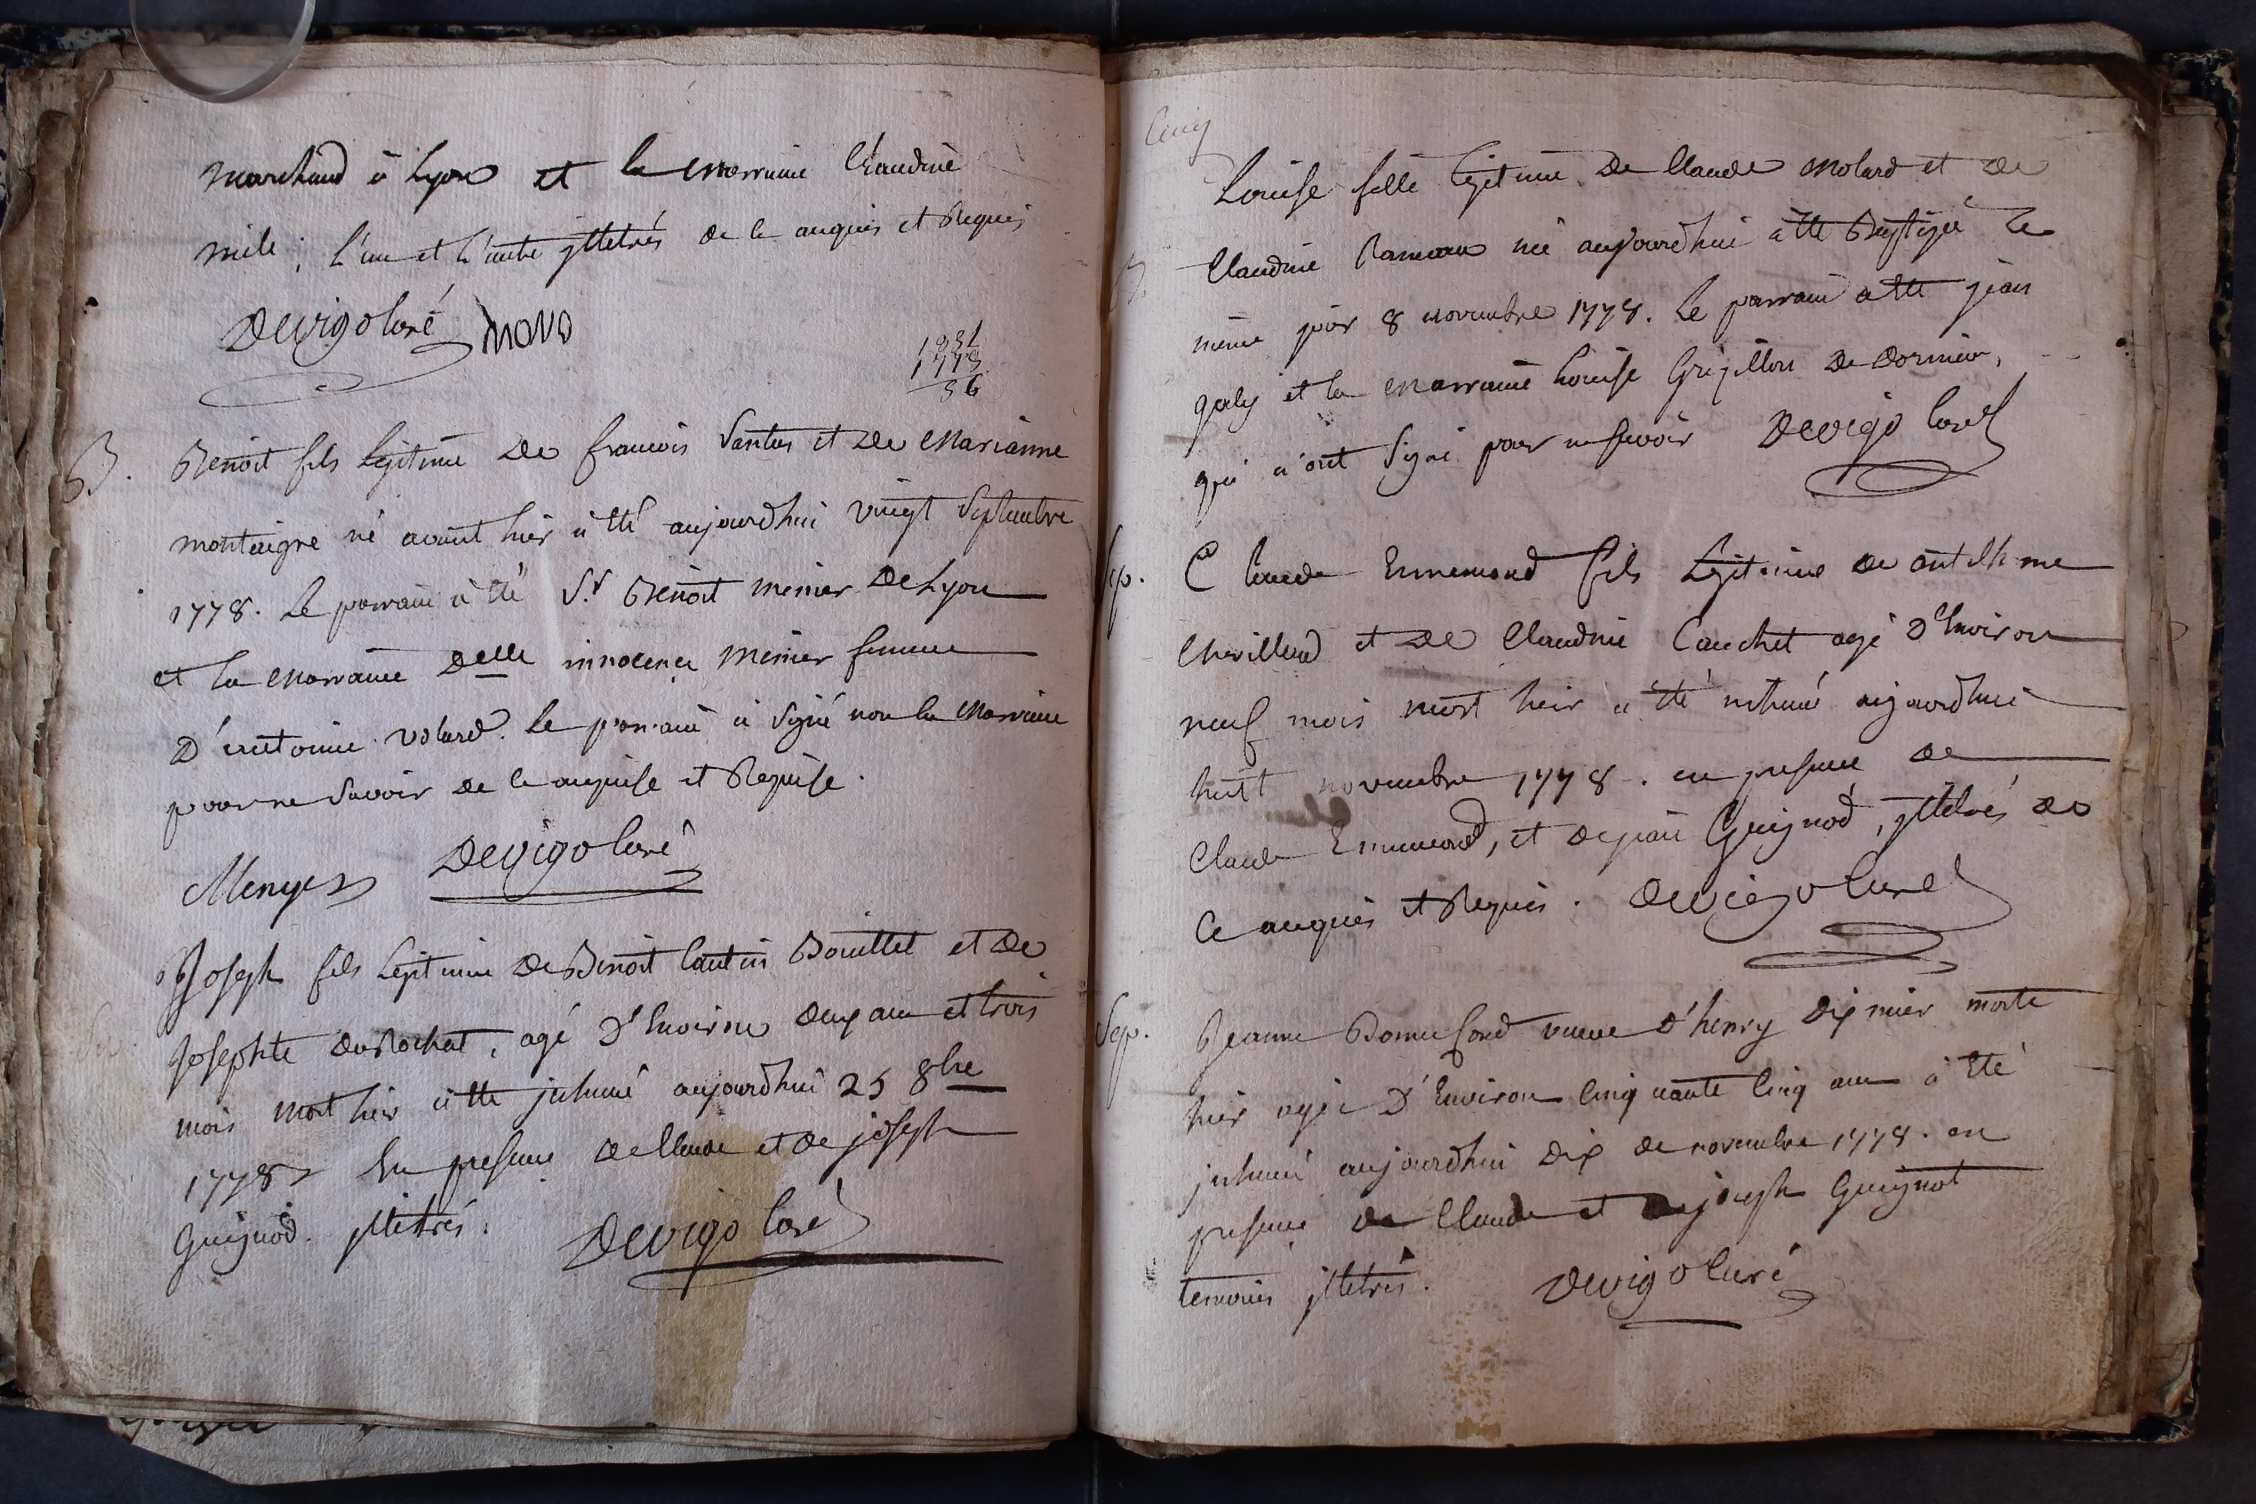 marchand à Lyon et la marraine Claudine
mile; l'un et l'autre yllétrés de ce enquis et Requis
Devigo Curé
1831
1778
56
B. Benoit fils légitime de francois Santus et de Marianne
montaigne né avant hier à été aujourdhui vingt Septembre
1778. Le parrain à été Sr Benoit menier De Lyon
et la Marraine Delle innocence Menier femme
D'antoine volard. Le parrain à signé non la Marraine
pour ne savoir de ce enquise et Requise.
Devigo Curé
Joseph fils Légitime de Benoit Cantin Bouillet et de
Josephte duRochat, agé D'Environ deux ans et trois
mois mort hier à été inhumé aujourdhui 25 8bre
1778 En presence de Claude et de joseph
Guignod. yllétrés. Devigo Curé
B. Louise fille légitime De Claude Molard et De
Claudine Rameaux née aujourdhui à été Baptizée le
même jour 8 novembre 1778. Le parrain à été jean
galy et la Marraine Louise Grizillon De dornieu,
qui n'ont signé pour ne sçavoir Devigo Curé
Sep. Claude Ennemond fils Légitime de antelhme
Chevillard et De Claudine Cauchet agé D'Environ
neuf mois mort hier à été inhumé aujourdhui
huit novembre 1778. en presence de
Claude Ennemond, et de jean Guignod, yllétrés de
Ce enquis et Requis. Devigo Curé
Sep. Jeanne Bonnefond veuve D'henry Dixmier morte
hier agée D'Environ Cinquante Cinq ans à été
inhumée aujourdhui dix de novembre 1778. en
presence de Claude et de joseph Guignot
temoins yllétrés. Devigo Curé